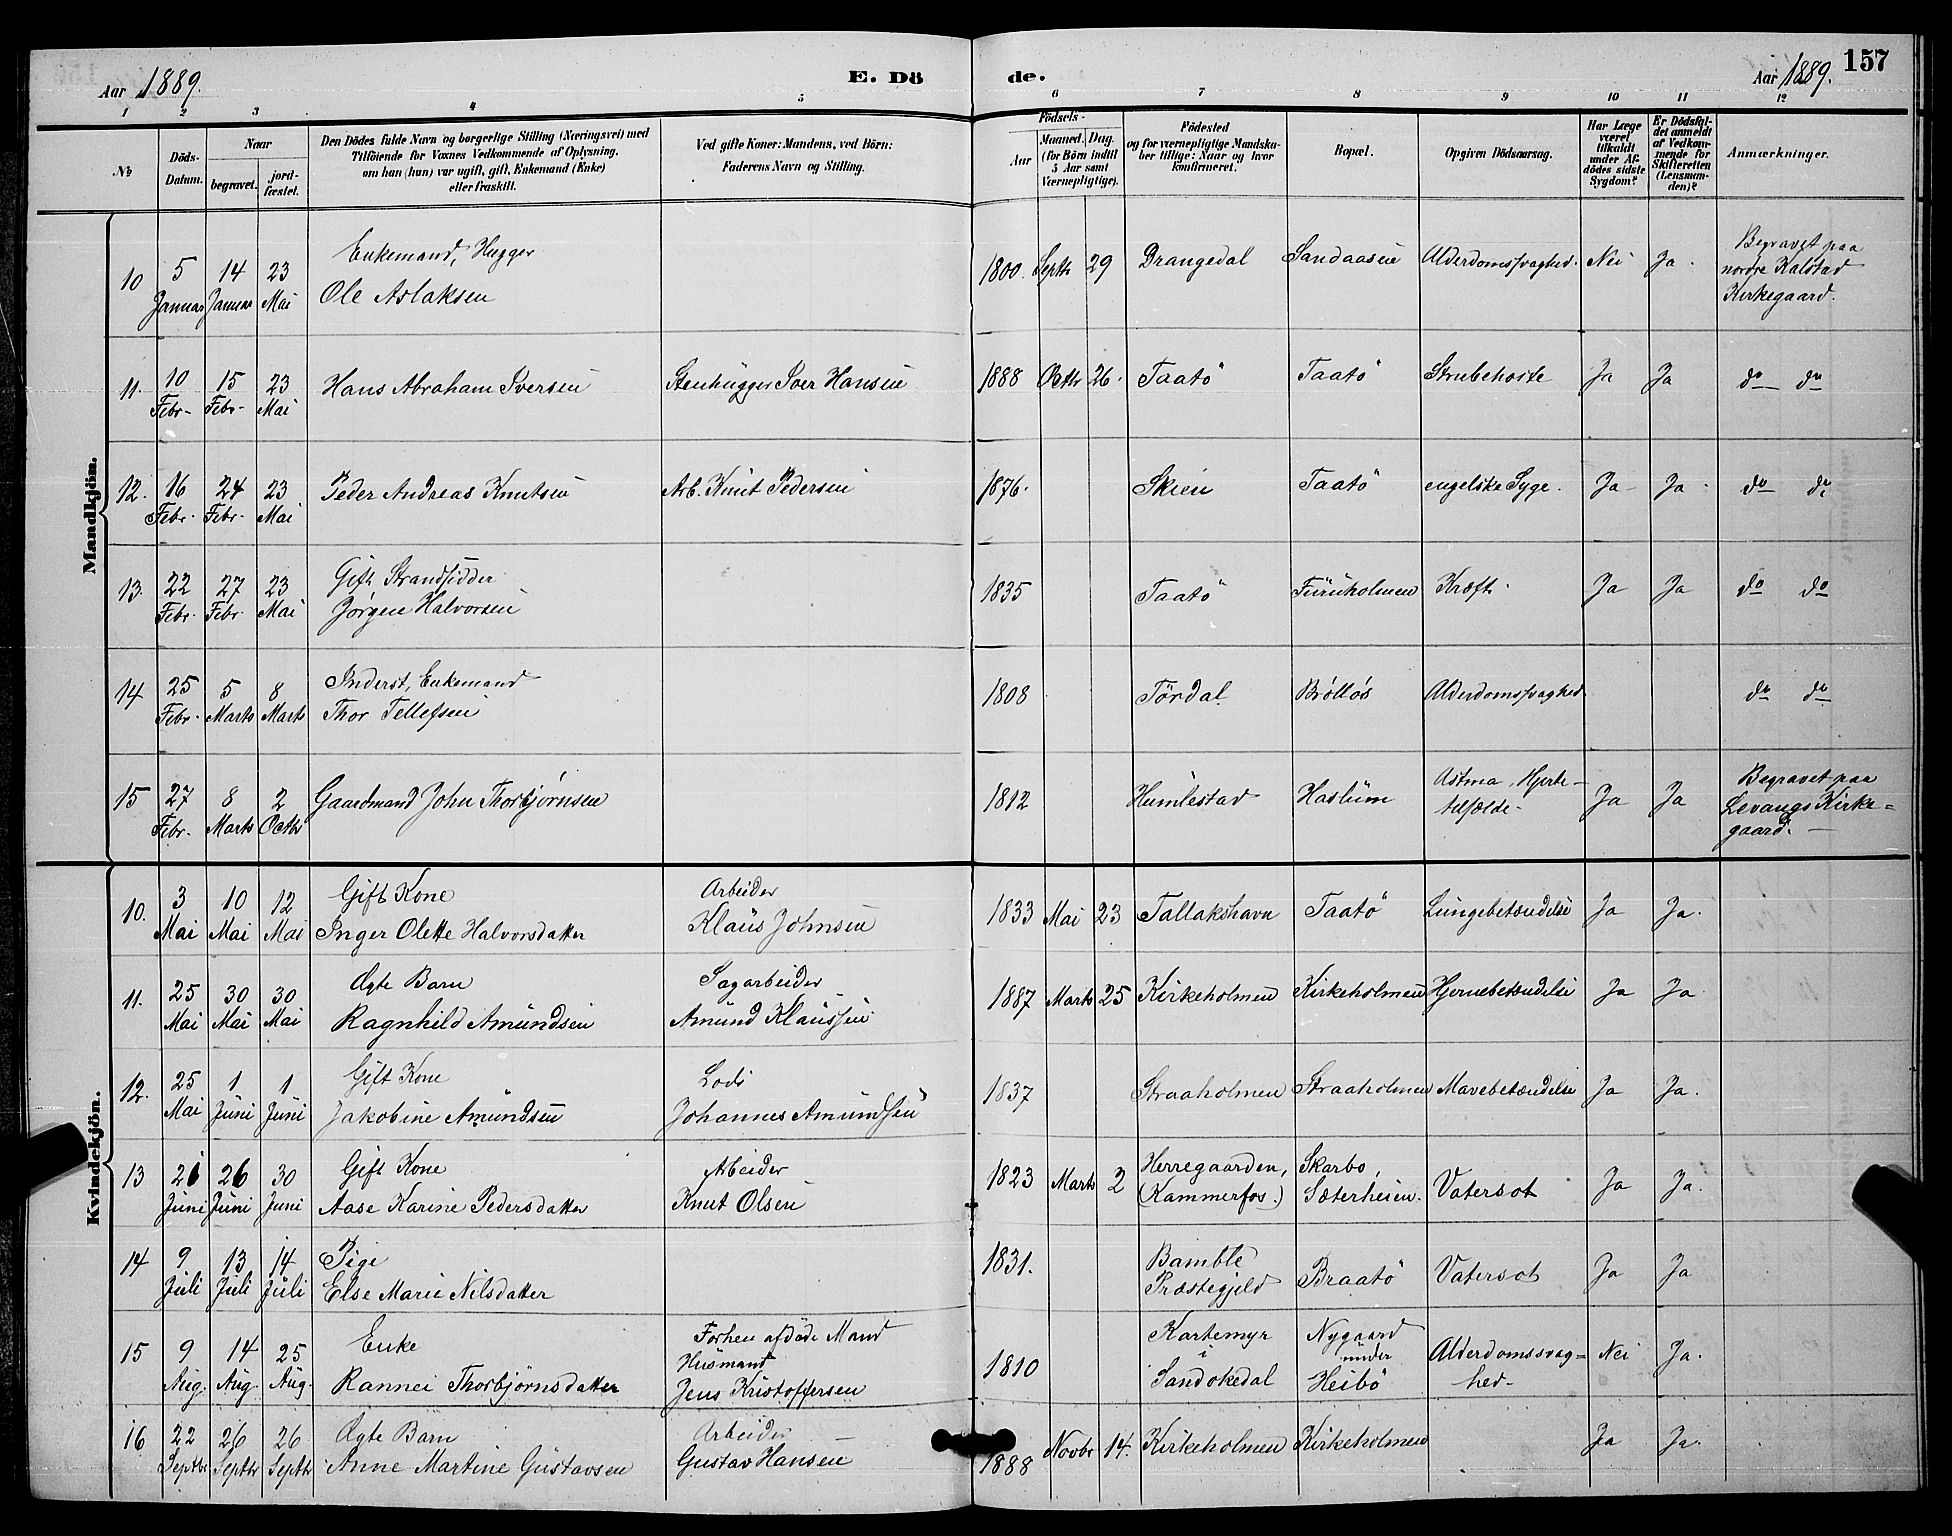 Aar 1889.
E. Dö
de.
Aar 1889.
157
1 2 3 4 5 6 7 8 9 10 11 12
No
Döds-Datum.
Naar
begravet.
jord-fæstet.
Den Dödes fulde Navn og borgerlige Stilling (Næringsvei) med
Tilföiende for Voxnes Vedkommende af Oplysning,
om han (hun) var ugift, gift, Enkemand (Enke)
eller fraskilt.
Ved gifte Koner: Mandens, ved Börn:
Faderens Navn og Stilling.
Födsels-
Aar
Maaned. Dag.
(for Börn indtil
5 Aar samt
Værnepligtige).
Födested
og for værnepligtige Mandska-
ber tillige: Naar og hvor
konfirmeret.
Bopæl.
Opgiven Dödsaarsag.
Har Læge
været
tilkaldt
under Af-
dödes sidste
Sygdom?
Er Dödsfal-
det anmeldt
af Vedkom-
mende for
Skifteretten
(Lensman-
den)?
Anmærkninger.
Mandkjön.
10 5 Januar 14 Januar 23 Mai Enkemand, Hugger
Ole Aslaksen 1800. Septbr 29 Drangedal Sandaasen Alderdomssvaghed. Nei Ja. Begravet paa
nordre Kalstad
Kirkegaard.
11. 10 Febr. 15 Febr. 23 Mai Hans Abraham Iversen Stenhugger Iver Hansen 1888 Octbr 26. Taatö Taatö Strubehoste Ja Ja do do
12. 16 Febr. 24 Febr. 23 Mai Peder Andreas Knutsen Arb. Knut Pedersen 1876. Skien Taatö engelske Syge. Ja Ja do do
13. 22 Febr. 27 Febr. 23 Mai Gift Strandsidder
Jørgen Halvorsen 1835 Taatö Furuholmen Kræft. Ja Ja do do
14 25 Febr. 5 Marts 8 Marts Inderst, Enkemand
Thor Tellefsen 1808 Tördal Brøtløs Alderdomssvaghed do do
15 27 Febr. 8 Marts 2 Octbr Gaardmand John Thorbjørnsen 1812 Humlestad Haslum Astma, Hjerte-
tilfælde. Ja Ja Begravet paa
Levangs Kirke=
gaard.
Kvindekjön.
10. 3 Mai 10 Mai 12 Mai Gift Kone
Inger Olette Halvorsdatter Arbeider
Klaus Johnsen 1833 Mai 23 Tallakshavn Taatö Lungebetændelse Ja Ja.
11. 25 Mai 30 Mai 30 Mai Ægte Barn
Ragnhild Amundsen Sagarbeider
Amund Klaussen 1887 Marts 25 Kirkeholmen Kirkeholmen Hjernebetændelse Ja Ja
12. 25 Mai 1 Juni 1 Juni Gift Kone
Jakobine Amundsen Lods
Johannes Amundsen 1837 Straaholmen Straaholmen Mavebetændelse Ja Ja.
13 21 Juni 26 Juni 30 Juni Gift Kone
Aase Karine Pedersdatter Abeider
Knut Olsen 1823 Marts 2 Herregaarden,
(Kammerfos.) Skarbo,
Sæterheien. Vatersot Ja Ja.
14 9 Juli 13 Juli 14 Juli Pige
Else Marie Nilsdatter 1831. Bamble
Præstegjeld Braatö Vatersot Ja Ja
15 9 Aug. 14 Aug 25 Aug. Enke
Rannei Thorbjørnsdatter Forhen afdöde Mand
Husmand
Jens Kristoffersen 1810 Kartemyr
i
Sandokedal Nygaard
under
Heibö Alderdomssvag=
hed. Nei Ja.
16 22 Septbr 26 Septbr 26 Septbr Ægte Barn
Anne Martine Gustavsen Arbeider
Gustav Hansen 1888 Novbr 14. Kirkeholmen Kirkeholmen Ja Ja.